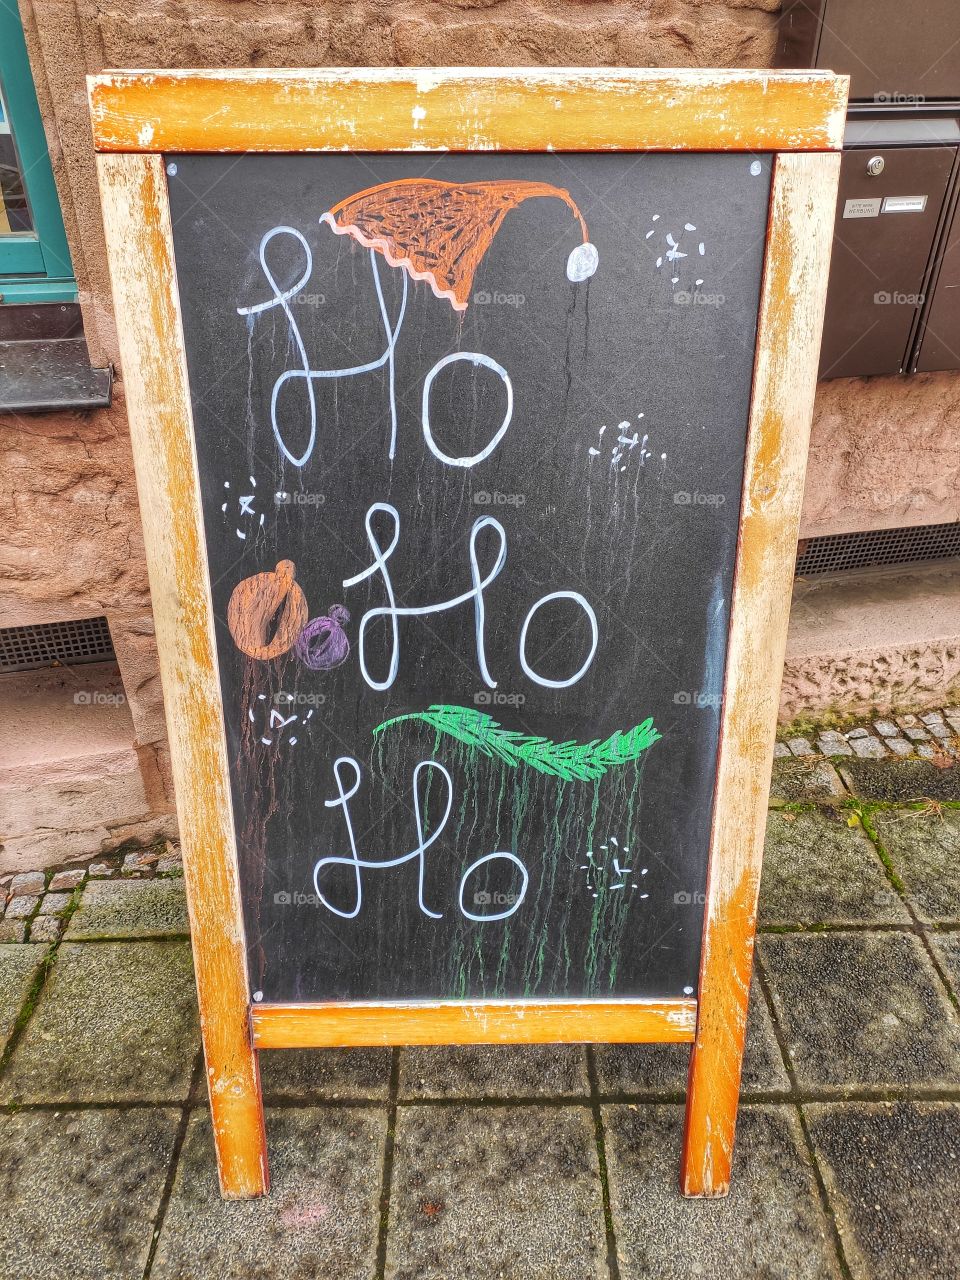 Ho
Ho
Ho
BITTE KEINE
WERBUNG
foap